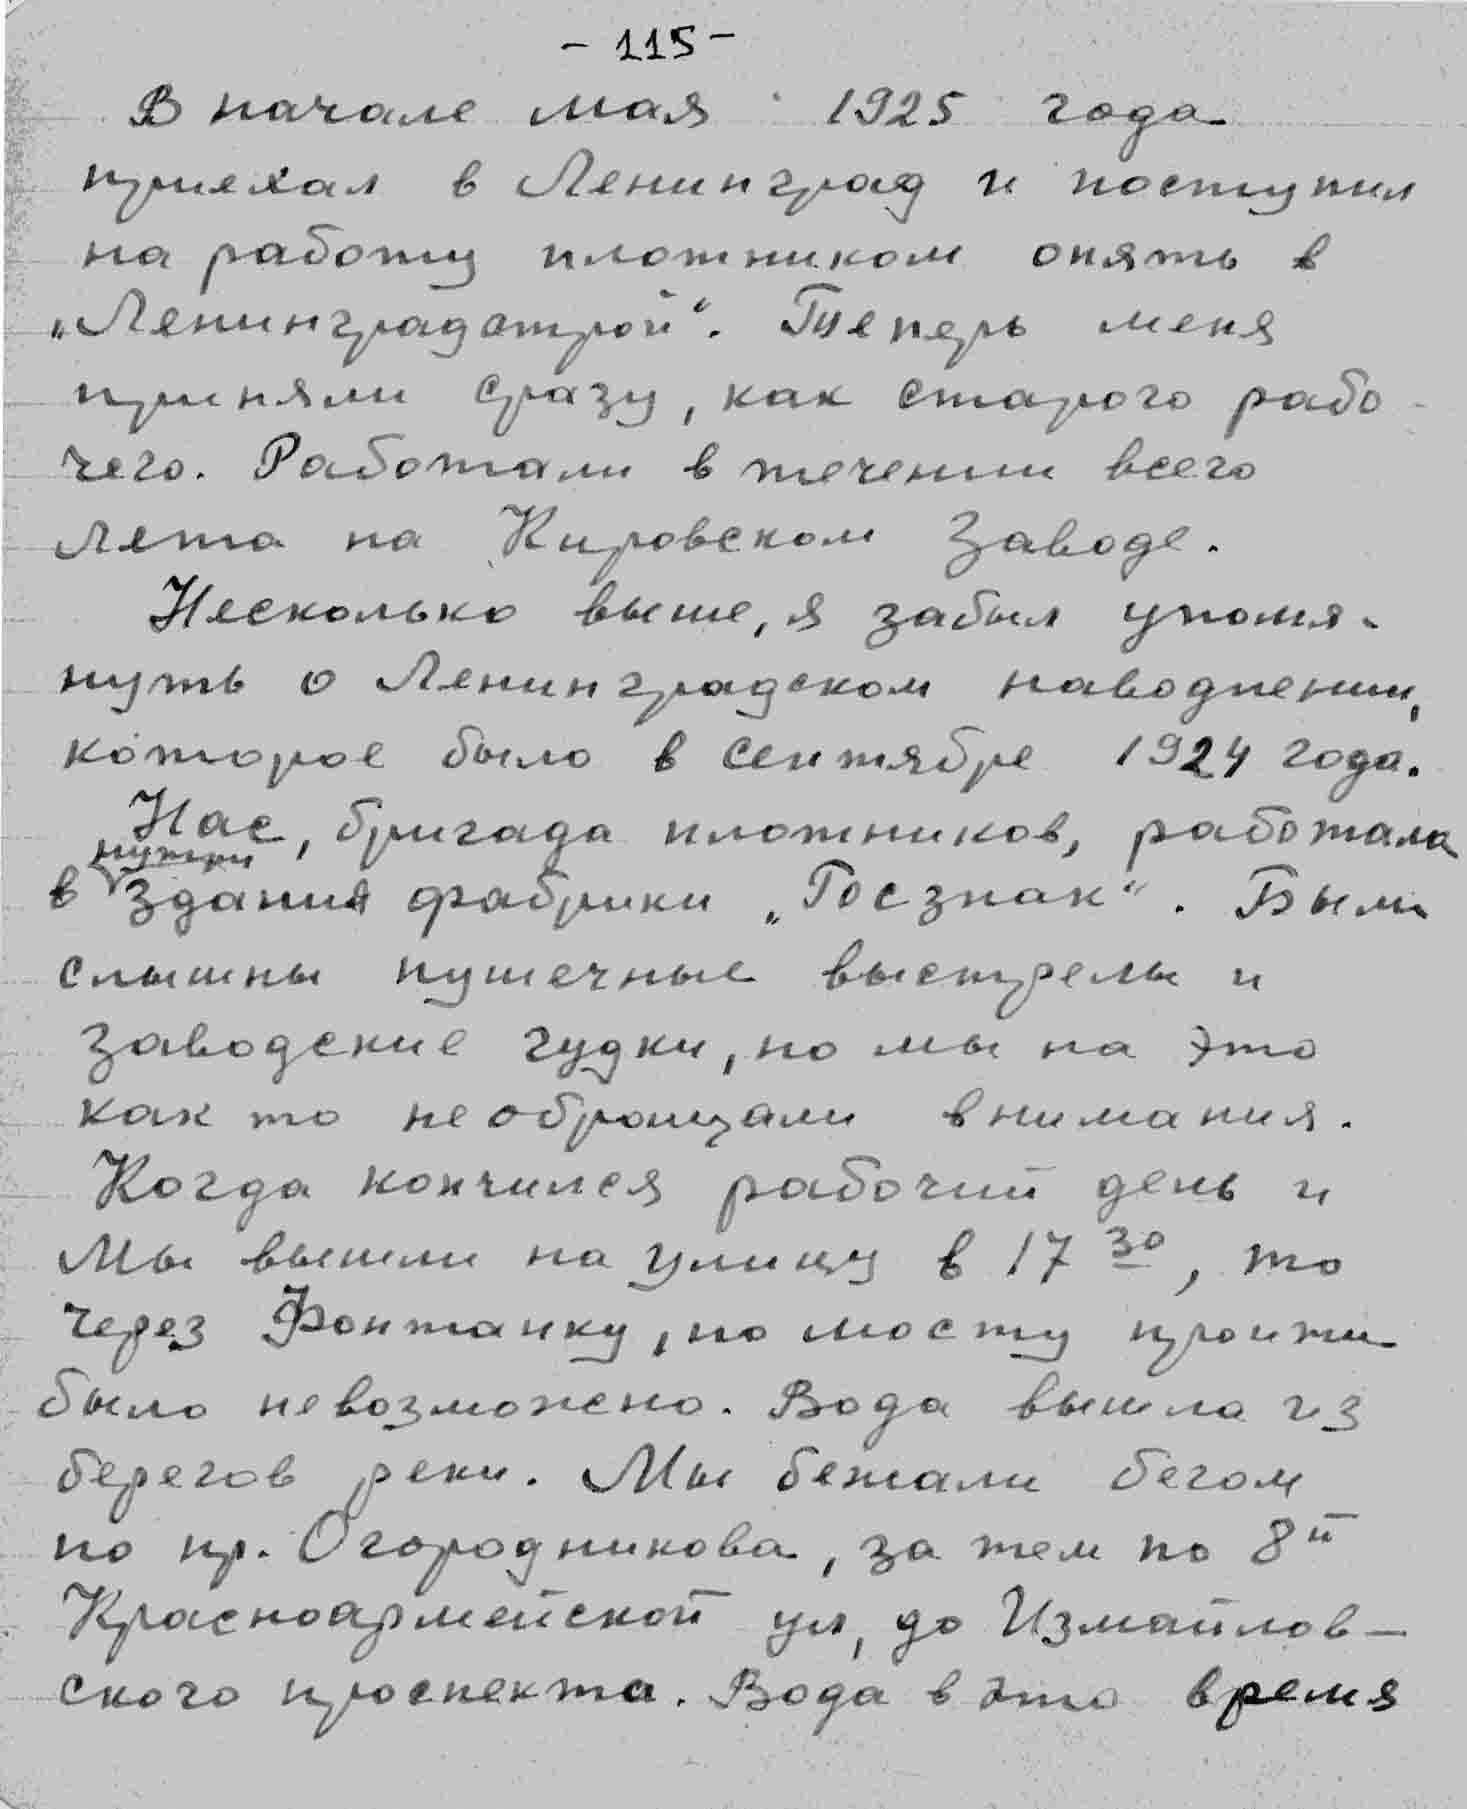 - 115 -
В начале мая 1925 года
приехал в Ленинград и поступил
на работу плотником опять в
„Ленинградстрой“. Теперь меня
приняли сразу, как старого рабо-
чего. Работали в течении всего
лета на Кировском заводе.
Несколько выше, я забыл упомя-
нуть о Ленинградском наводнении,
которое было в сентябре 1924 года.
Нас, бригада плотников, работала
нутри
в здания фабрики „Гознак“. Были
слышны пушечные выстрелы и
заводские гудки, но мы на это
как то не обращали внимания.
Когда кончился рабочий день и
мы вышли на улицу в 17 30, то
через Фонтанку, по мосту пройти
было невозможно. Вода вышла из
берегов реки. Мы бежали бегом
по пр. Огородникова, за тем по 8й
Красноармейской ул, до Измайлов-
ского проспекта. Вода в это время